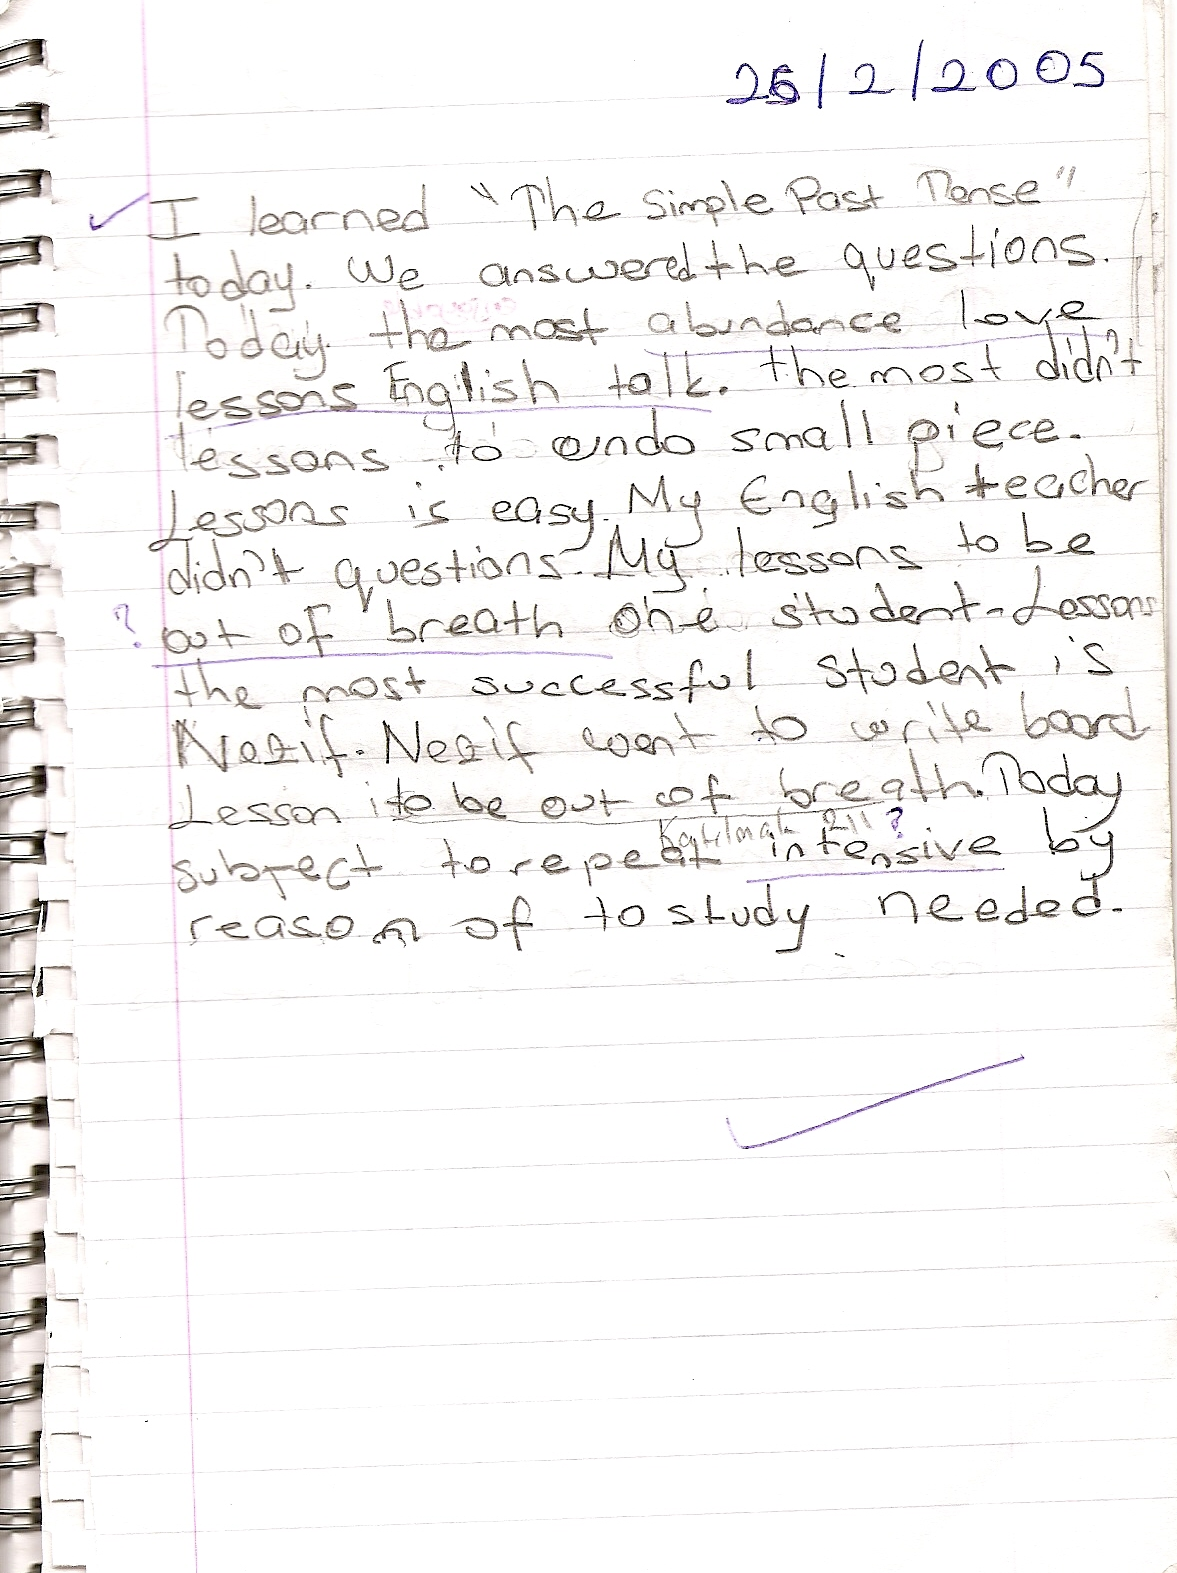 25/2/2005
I learned "The Simple Past Tense"
today. We answered the questions.
Today the most abundance love
lessons English talk. the most didn't
lessons to undo small piece.
Lessons is easy. My English teacher
didn't questions. My lessons to be
? out of breath one student. Lessons
the most successful student is
Nezif. Nezif went to write board
Lesson to be out of breath. Today
?
subject to repeat intensive by
reason of to study needed.